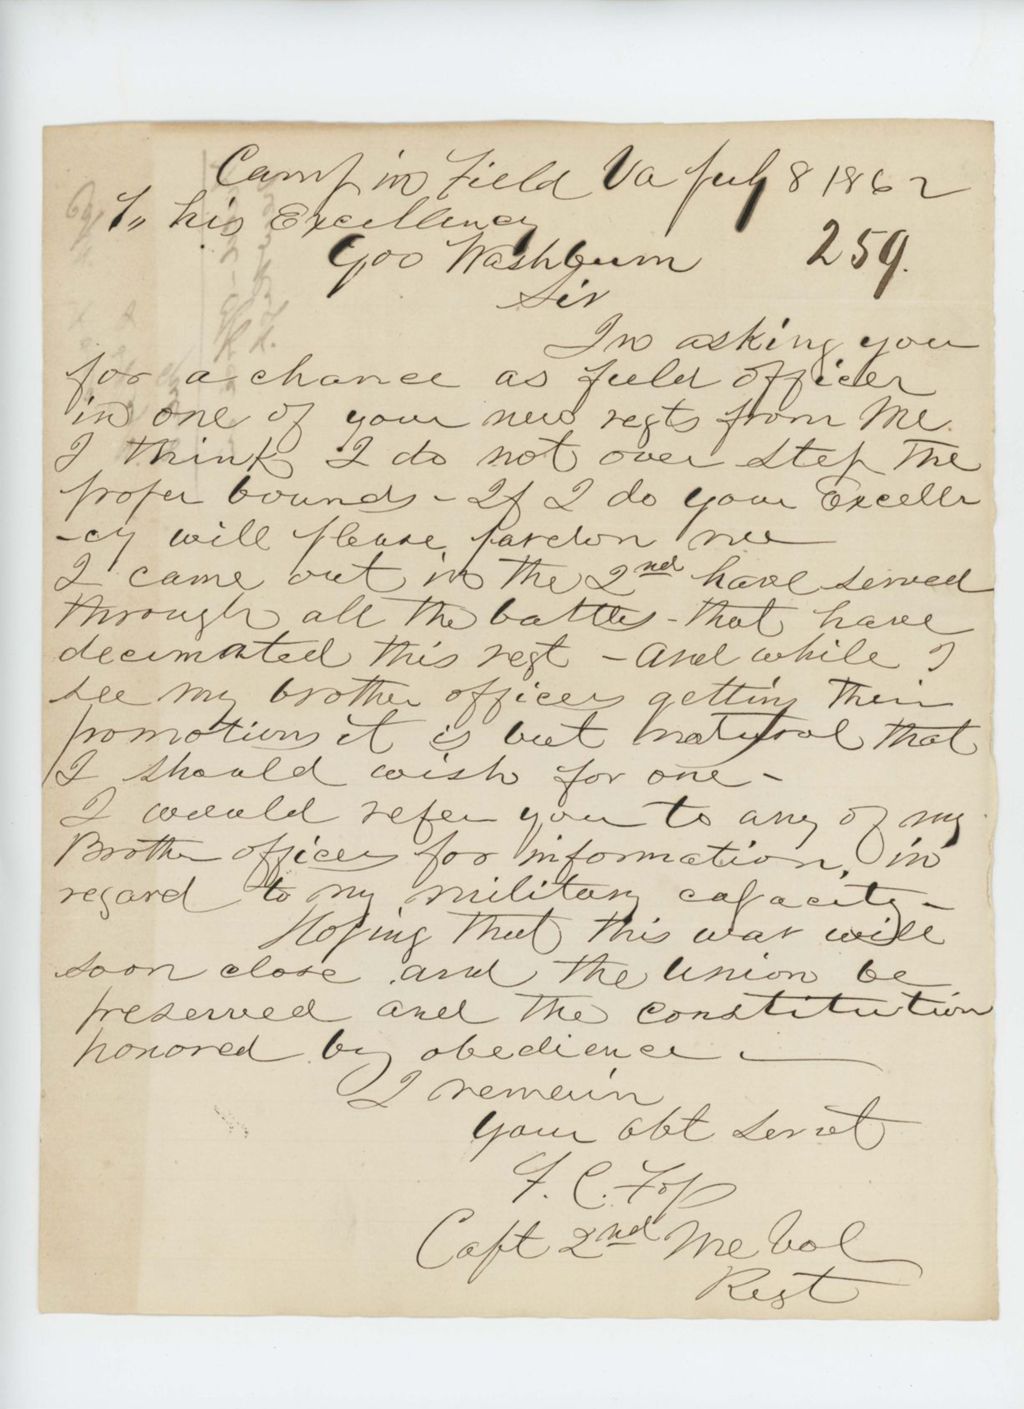 Camp in Field Va July 8 1862
To his Excellency
Gov Washburn 259.
Sir
In asking you
for a chance as field officer
in one of your new regts from Me.
I think I do not over step the
proper bounds - If I do your Excellen
-cy will please pardon me
I came out in the 2nd have served
through all the battles - that have
decimated this regt - And while I
see my brother officers getting their
promotions it is but natural that
I should wish for one -
I would refer you to any of my
Brother officers for information, in
regard to my military capacity -
Hoping that this war will
soon close and the Union be
preserved and the constitution
honored by obedience -
I remain
your obt servt
F. C. Foss
Capt 2nd Me Vol
Regt